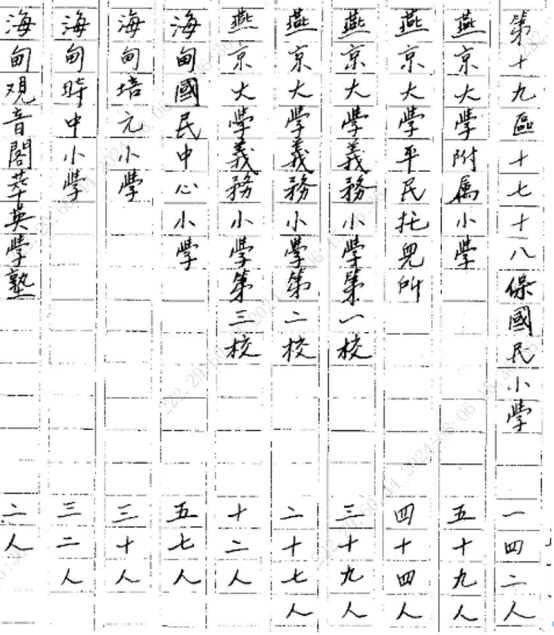 第十九區十七十八保國民小學 一四二人
燕京大學附属小學 五十九人
燕京大學平民托兒所 四十四人
燕京大學義務小學第一校 三十九人
燕京大學義務小學第二校 二十七人
燕京大學義務小學第三校 十二人
海甸國民中心小學 五七人
海甸培元小學 三十人
海甸時中小學 三二人
海甸观音閣萃英學塾 二人